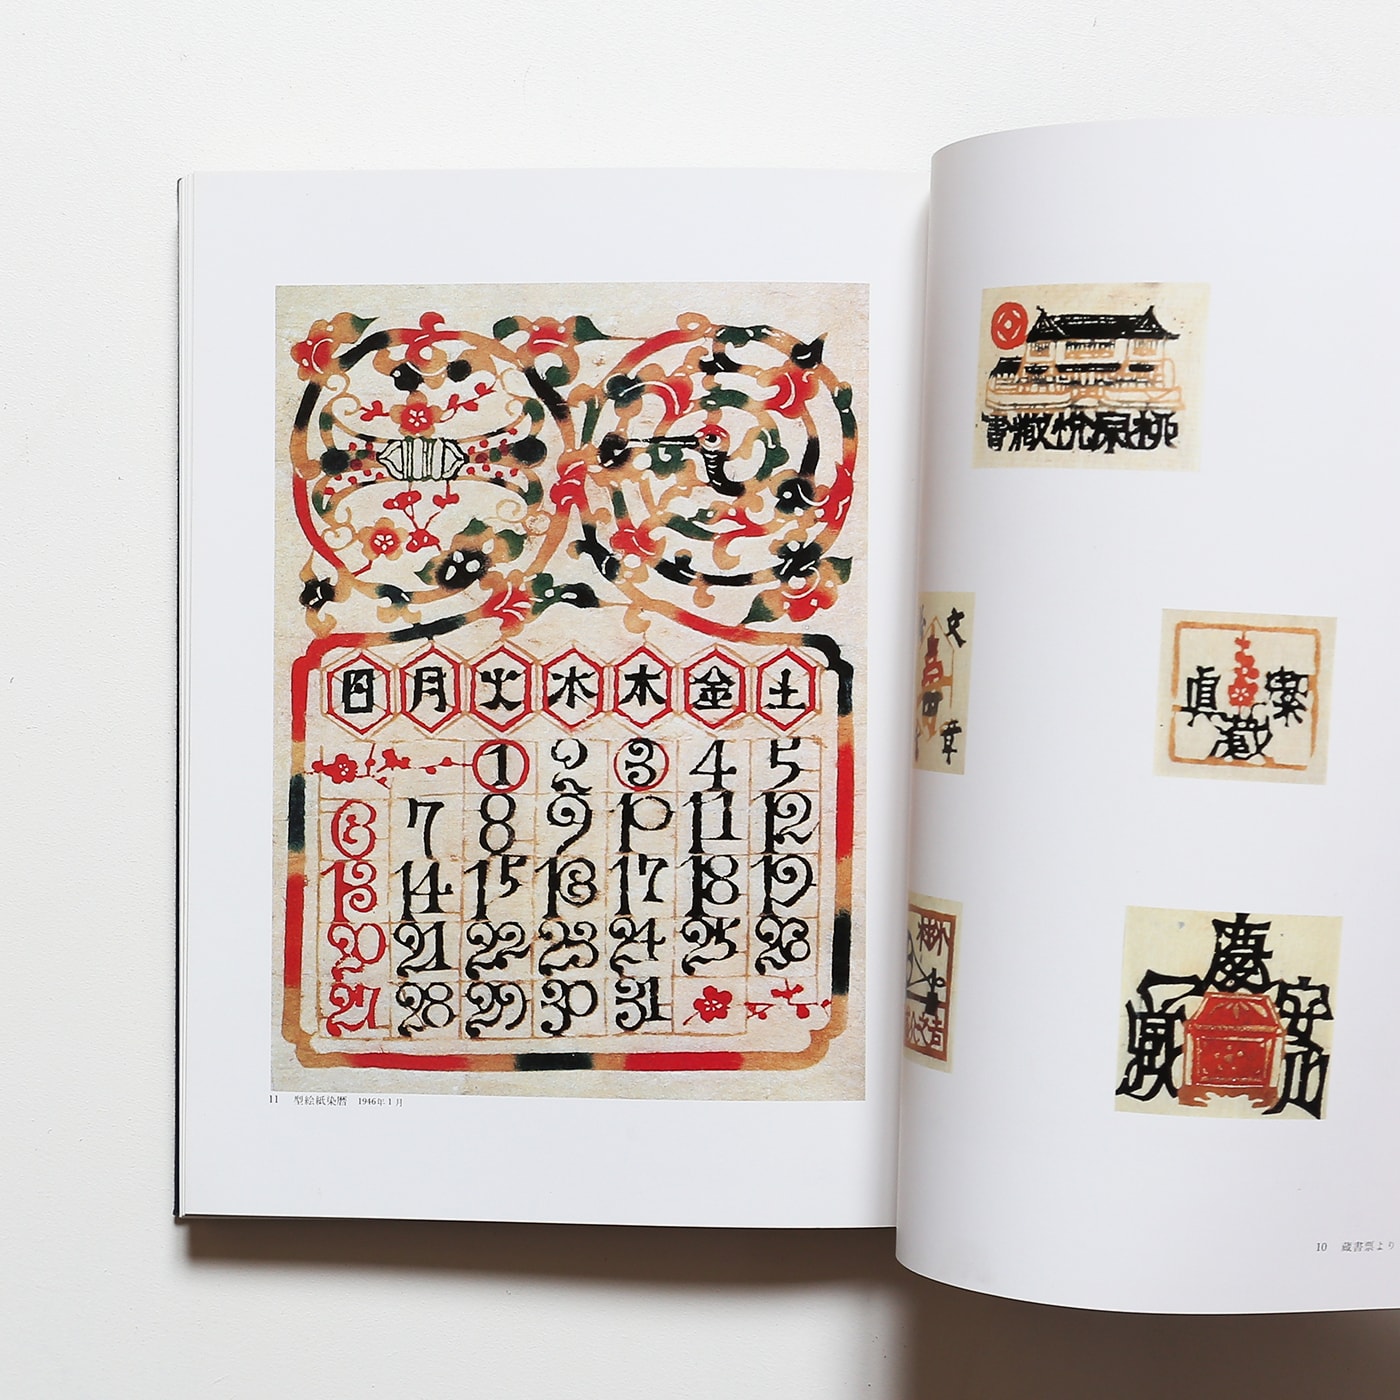 日 月 火 水 木 金 土
1 2 3 4 5
6 7 8 9 10 11 12
13 14 15 16 17 18 19
20 21 22 23 24 25 26
27 28 29 30 31
11 型絵紙染暦 1946年1月
書蔵悦宗柳
文
章
眞 蔵 繁
柳
10 蔵書票より